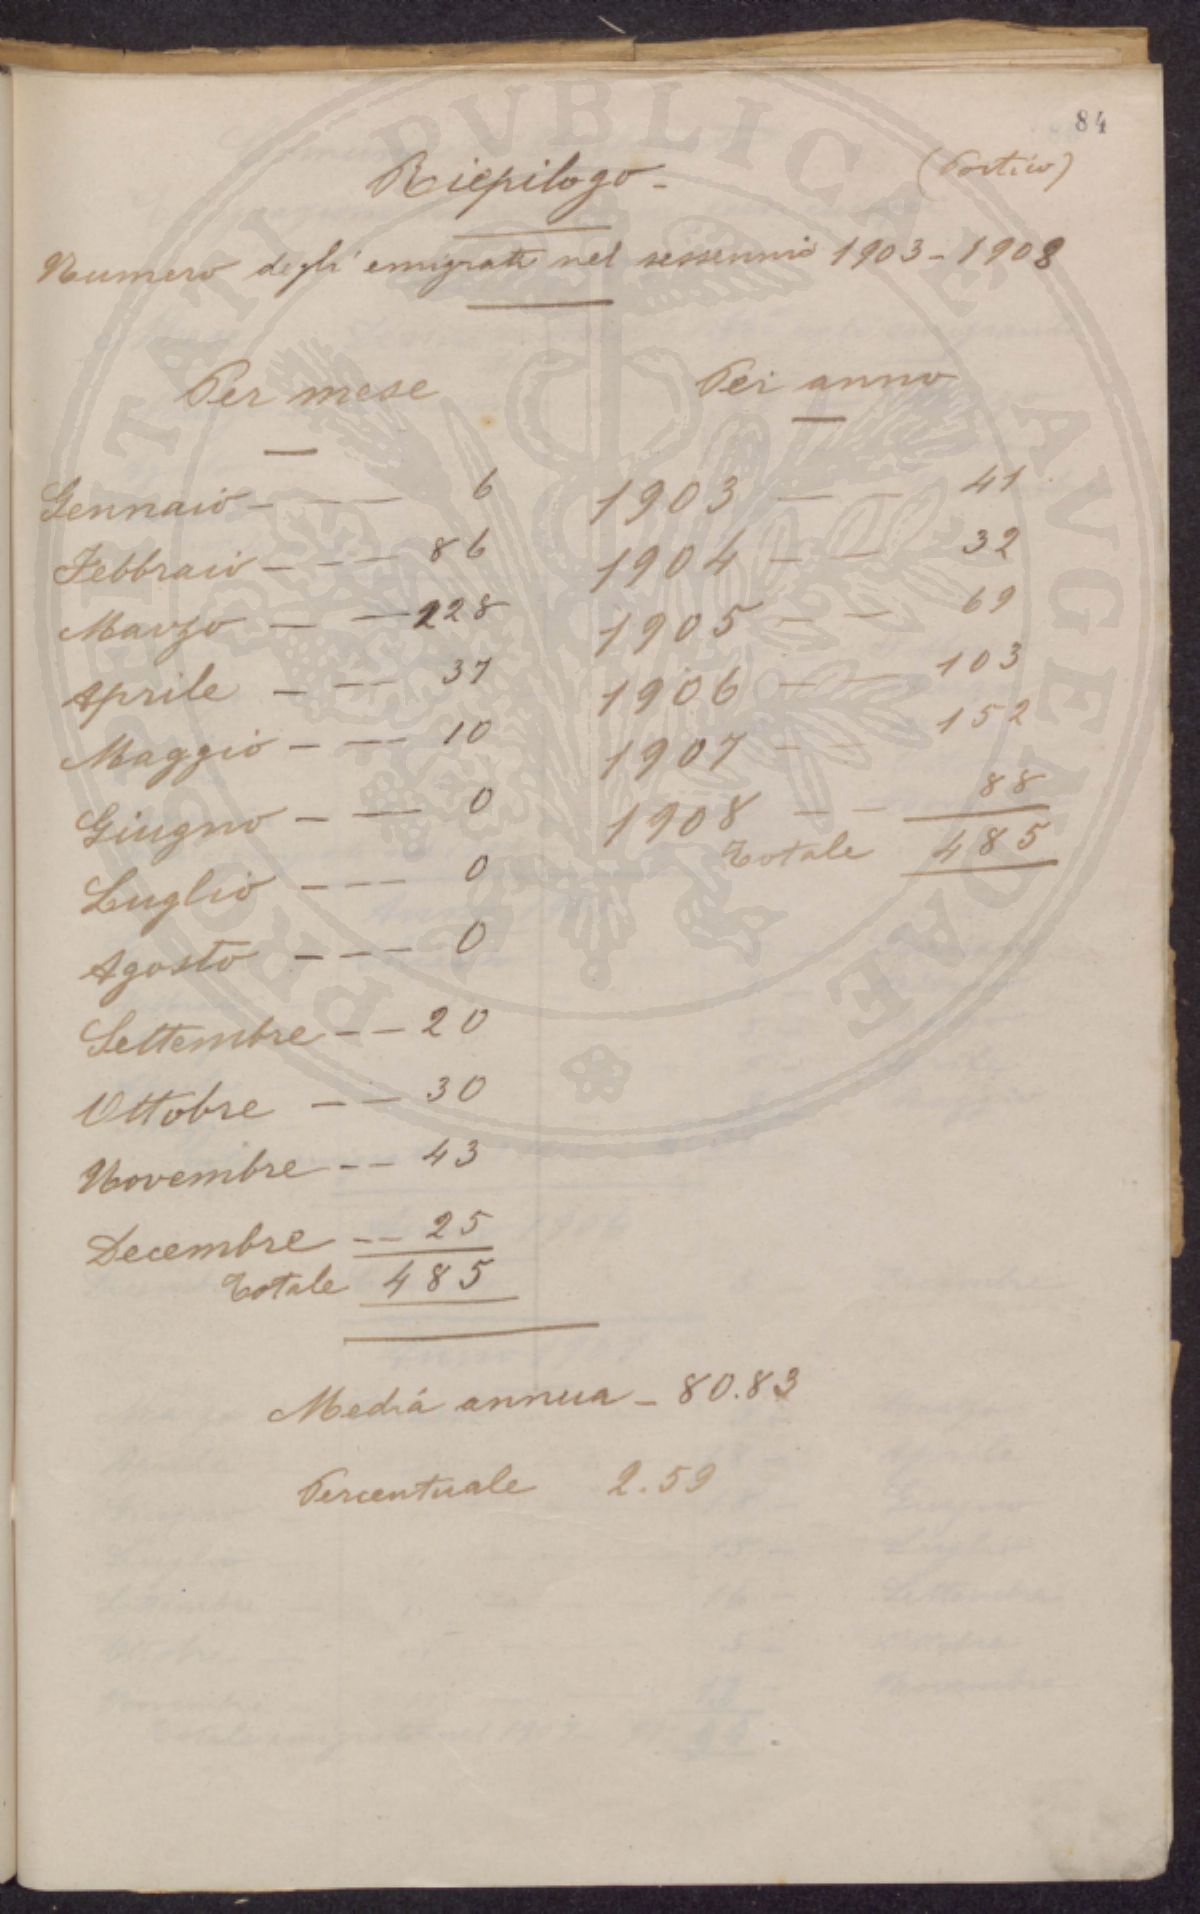 84
Riepilogo -
(Portico)
Numero degli emigrati nel sessennio 1903 - 1908
Per mese
Gennaio - — — — 6
Febbraio - - - - 86
Marzo — — 228
Aprile - — — 37
Maggio - — — 10
Giugno - — — 0
Luglio - - - 0
Agosto - - - - 0
Settembre - - 20
Ottobre - - - 30
Novembre - - 43
Decembre - - 25
Totale 485
Per anno
1903 — — 41
1904 - — 32
1905 - — 69
1906 — — 103
1907 — — 152
1908 — — 88
Totale 485
Media annua - 80.83
Percentuale 2.59
PROSPERITATI PVBLICAE AVGENDAE